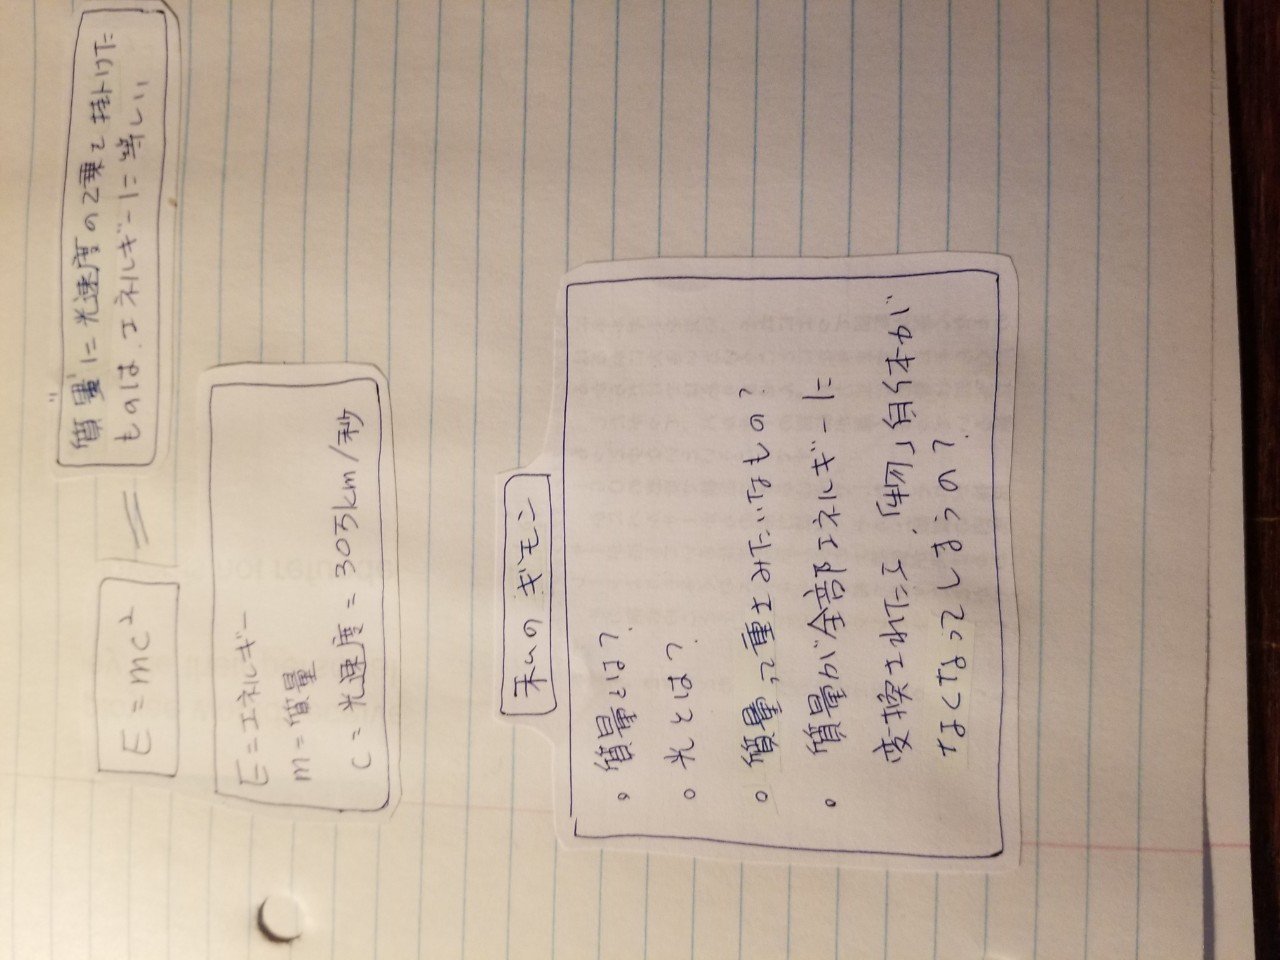 E=mc²
=
質量に光速度の2乗を掛けた
ものは、エネルギーに等しい
E=エネルギー
m=質量
c=光速度=30万km/秒
私のギモン
• 質量とは?
• 光とは?
• 質量って重さみたいなもの?
• 質量が全部エネルギーに
変換されたエ「物」自体が
なくなってしまうの?